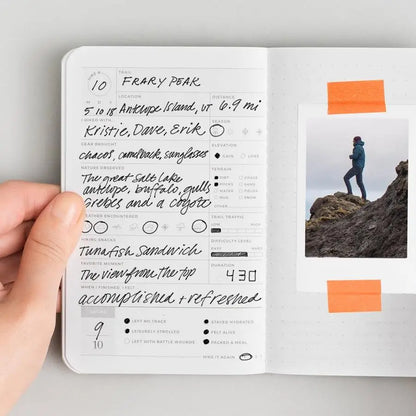 HIKE #
10
TRAIL
FRARY PEAK
M D Y
5 10 18
LOCATION
Antelope Island, UT
DISTANCE
6.9 mi
I HIKED WITH
Kristie, Dave, Erik
SEASON
GEAR BROUGHT
chacos, camelback, sunglasses
ELEVATION
GAIN
LOSS
NATURE OBSERVED
The great Salt Lake
antelope, buffalo, gulls
Grebes and a coyote
TERRAIN
DIRT
GRASS
ROCKS
SAND
WATER
PAVED
MUD
SNOW
OTHER
WEATHER ENCOUNTERED
TRAIL TRAFFIC
LOW
MAX
HIKING SNACKS
Tunafish Sandwich
DIFFICULTY LEVEL
EASY
HARD
FAVORITE MOMENT
The view from the top
DURATION
4 30
WHEN I FINISHED, I FELT
accomplished + refreshed
RATING
9
10
LEFT NO TRACE
STAYED HYDRATED
LEISURELY STROLLED
FELT ALIVE
LEFT WITH BATTLE WOUNDS
PACKED A MEAL
HIKE IT AGAIN